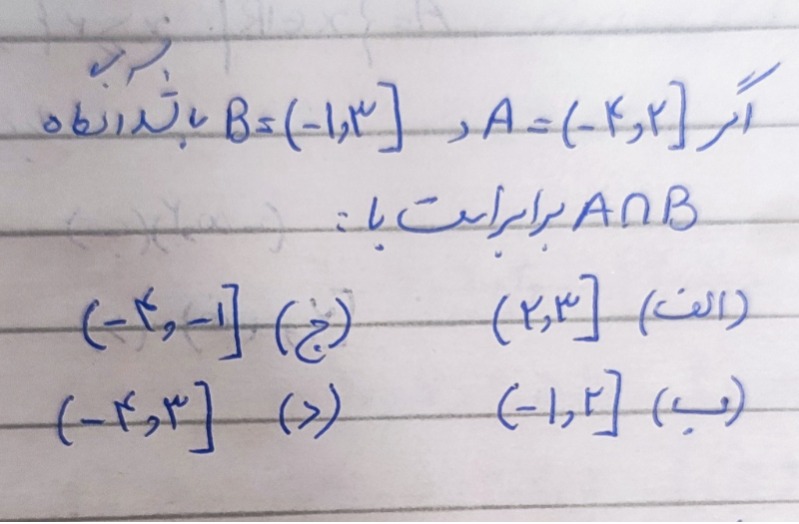 اگر A = (-۴,۲] و B = (-۱,۳] باشد آنگاه
A∩B برابر است با :
الف) (۲,۳] ج) (-۴,-۱]
ب) (-۱,۲] د) (-۴,۳]